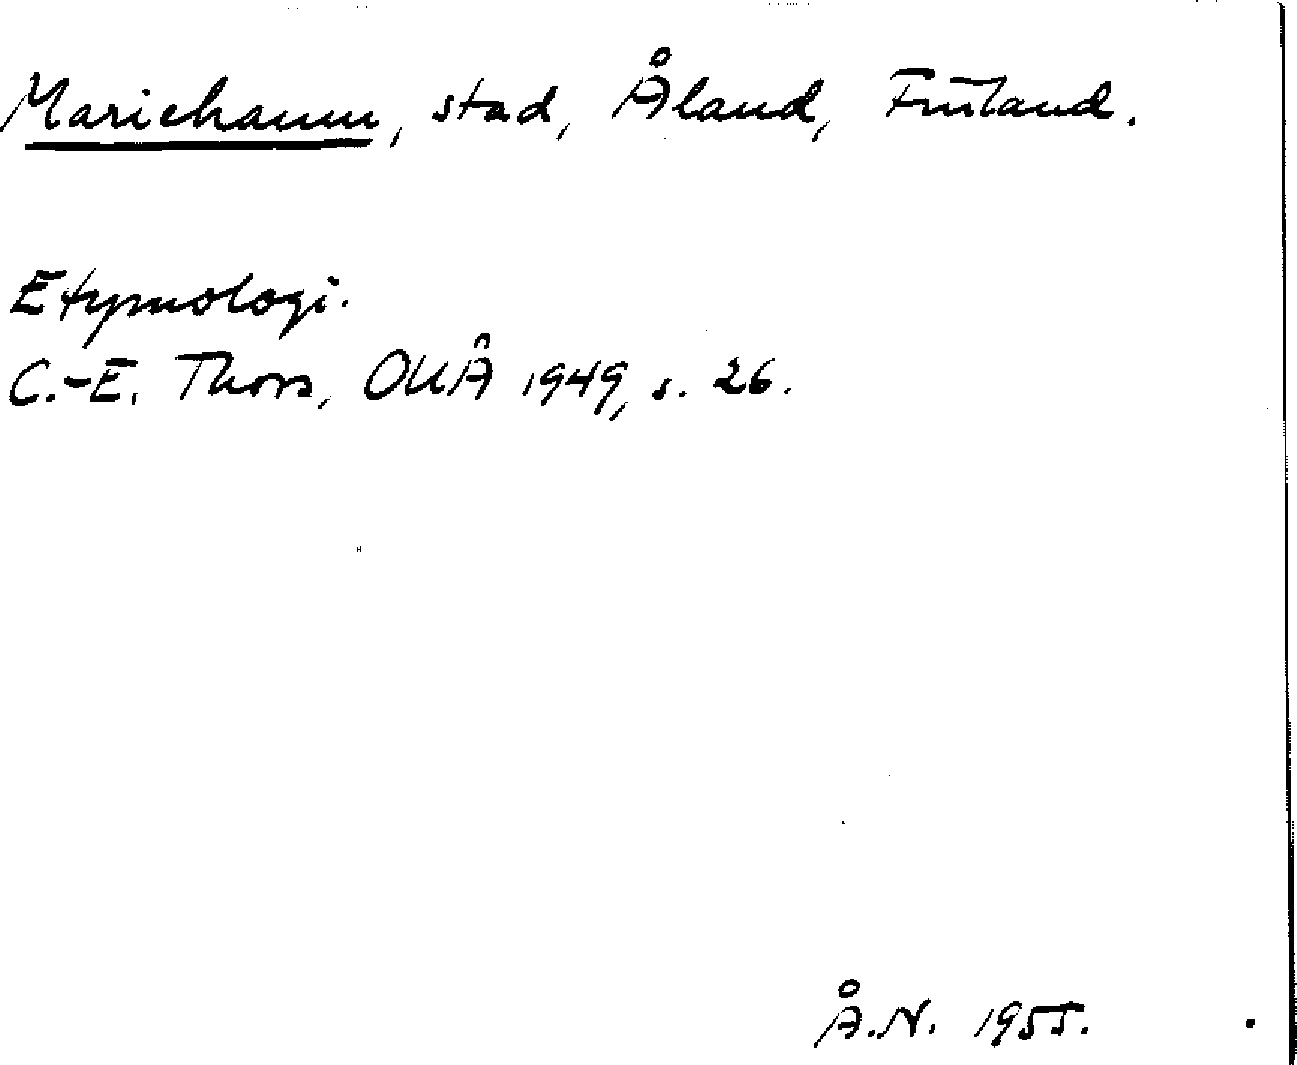 Mariehamn, stad, Åland, Finland.
Etymologi.
C.-E. Thors, OUÅ 1949, s. 26.
Å.N. 1955.